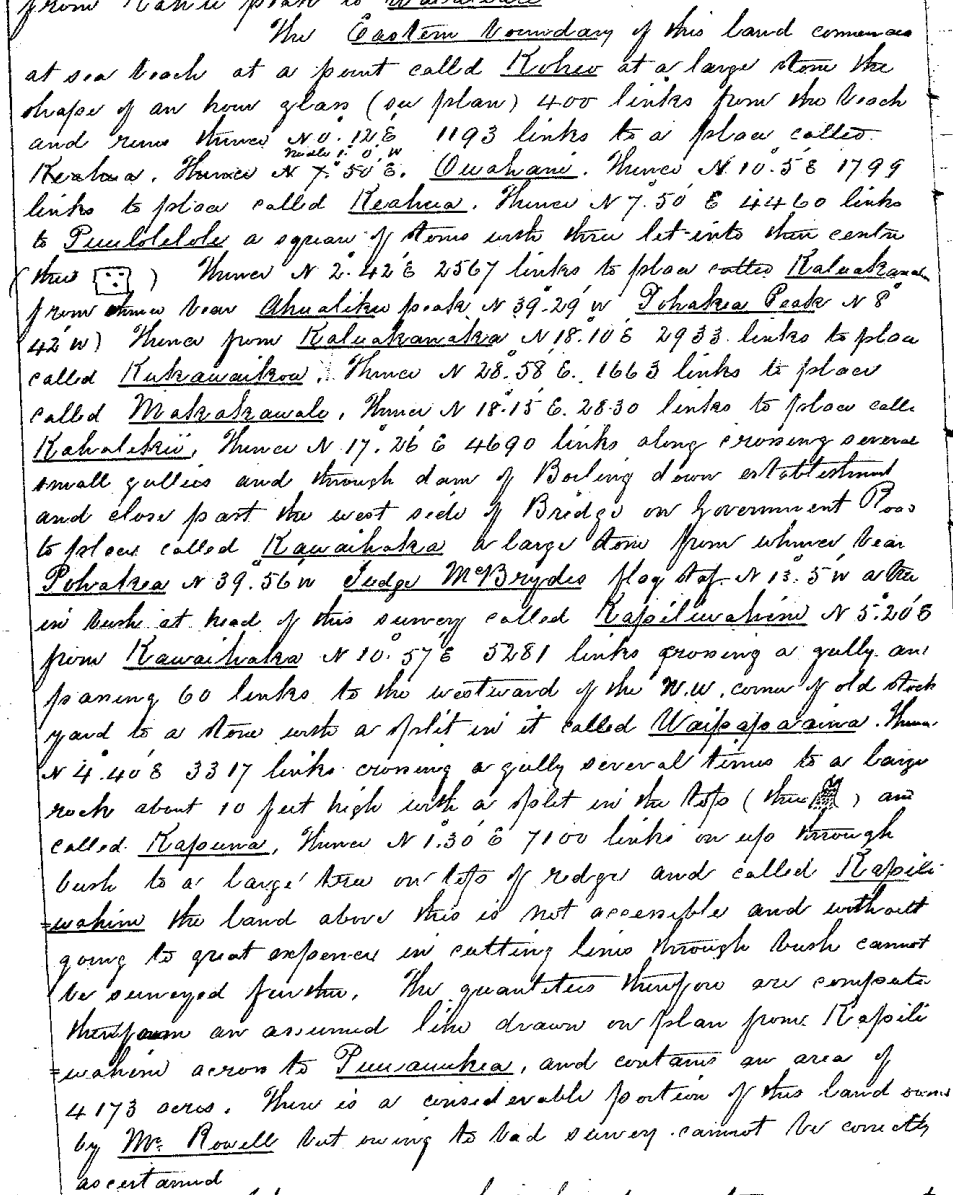 from
The Eastern boundary of this land commences
at sea beach at a point called Koheo at a large stone the
shape of an hour glass (see plan) 400 links from the beach
and runs thence N 0° 12' E 1193 links to a place called
Keahua. Thence N 7° 50' E. Owahani. Thence N 10° 5' E 1799
links to place called Keahua. Thence N 7° 50' E 4460 links
to Puulolelole a square of stones with three let into their centre
(thus ) Thence N 2° 42' E 2567 links to place called
from thence bear Ahualiku peak N 39° 29' W Pohakea Peak N 8°
42' W) Thence from Kaluakanaka N 18° 10' E 2933 links to place
called Kukawaikou. Thence N 28° 58' E. 1663 links to place
called Makakawale, Thence N 18° 15' E. 2830 links to place calle
Kahalekii, Thence N 17° 26' E 4690 links along crossing several
small gullies and through dam of Boiling down establishment
and close past the west side of Bridge on Government Roa
to place called Kawaihaka a large stone from whence bear
Pohakea N 39° 56' W Judge McBrydes flag staf N 13° 5' W a tree
in bush at head of this survey called Kapiliwahine N 5° 20' E
from Kawaihaka N 10° 57' E 5281 links crossing a gully an
passing 60 links to the westward of the N.W. corner of old stock
yard to a stone with a split in it called Waipaparaina. Thence
N 4° 40' E 3317 links crossing a gully several times to a large
rock about 10 feet high with a split in the top (thus ) an
called Kapuna, Thence N 1° 30' E 7100 links on up through
bush to a large tree on top of redge and called Kapili-
=wahine the land above this is not accessible and without
going to great expence in cutting lines through bush cannot
be surveyed further. The quantities therefore are compute
therefrom an assumed line drawn on plan from Kapili
=wahine across to Puuauukea, and contains an area of
4173 acres. There is a considerable portion of this land owne
by Mr. Rowell but owing to bad survey cannot be correctly
ascertained